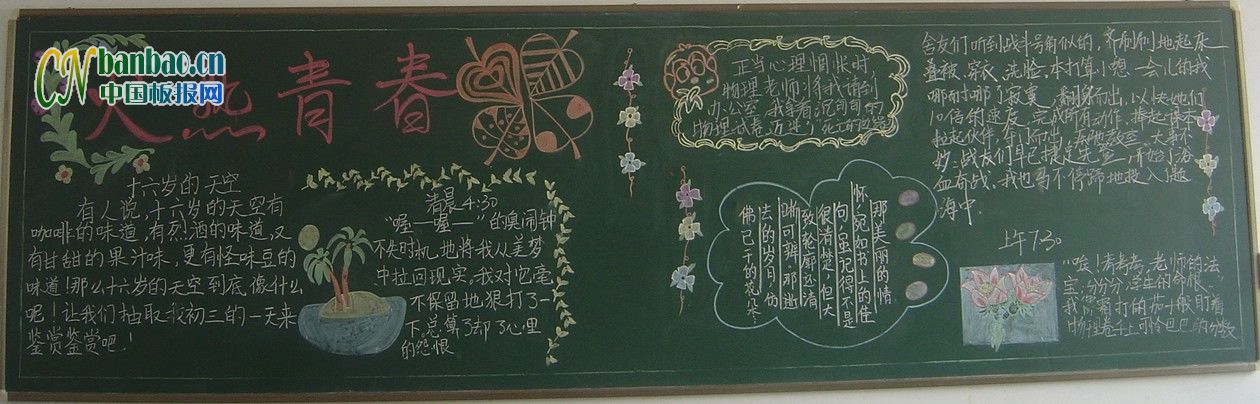 banbao.cn
中国板报网
火热青春
十六岁的天空
有人说,十六岁的天空有
咖啡的味道,有烈酒的味道,又
有甘甜的果汁味,更有怪味豆的
味道!那么十六岁的天空到底像什么
呢!让我们抽取我初三的一天来
鉴赏鉴赏吧!
清晨4:30
“喔——喔——”的臭闹钟
不失时机地将我从美梦
中拉回现实。我对它毫
不保留地狠打了一
下,总算了却了心里
的怨恨
正当心理惆怅时
物理老师:将我请到
办公室 我拿着沉甸甸的
物理试卷
那美丽的情
怀,宛如书上的佳
句,虽记得不是
很清楚,但大
致轮廓还清
晰可辨,那逝
去的岁月,仿
佛已干的花朵…
舍友们听到战斗号角似的,齐刷刷地起床
叠被、穿衣、洗脸。本打算小憩一会儿的我
哪耐得了寂寞,翻身而出,以快她们
10倍的速度,完成所有动作,捧起课本
拉起伙伴,夺门而出,
妙:战友们早已捷足先登,开始了浴
血奋战,我也马不停蹄地投入了题
海中.
上午7:30
“唉!考考考,老师的法
宝,分分分学生的命根.
我常霜打的茄子般盯着
物理卷子上可怜巴巴的分数